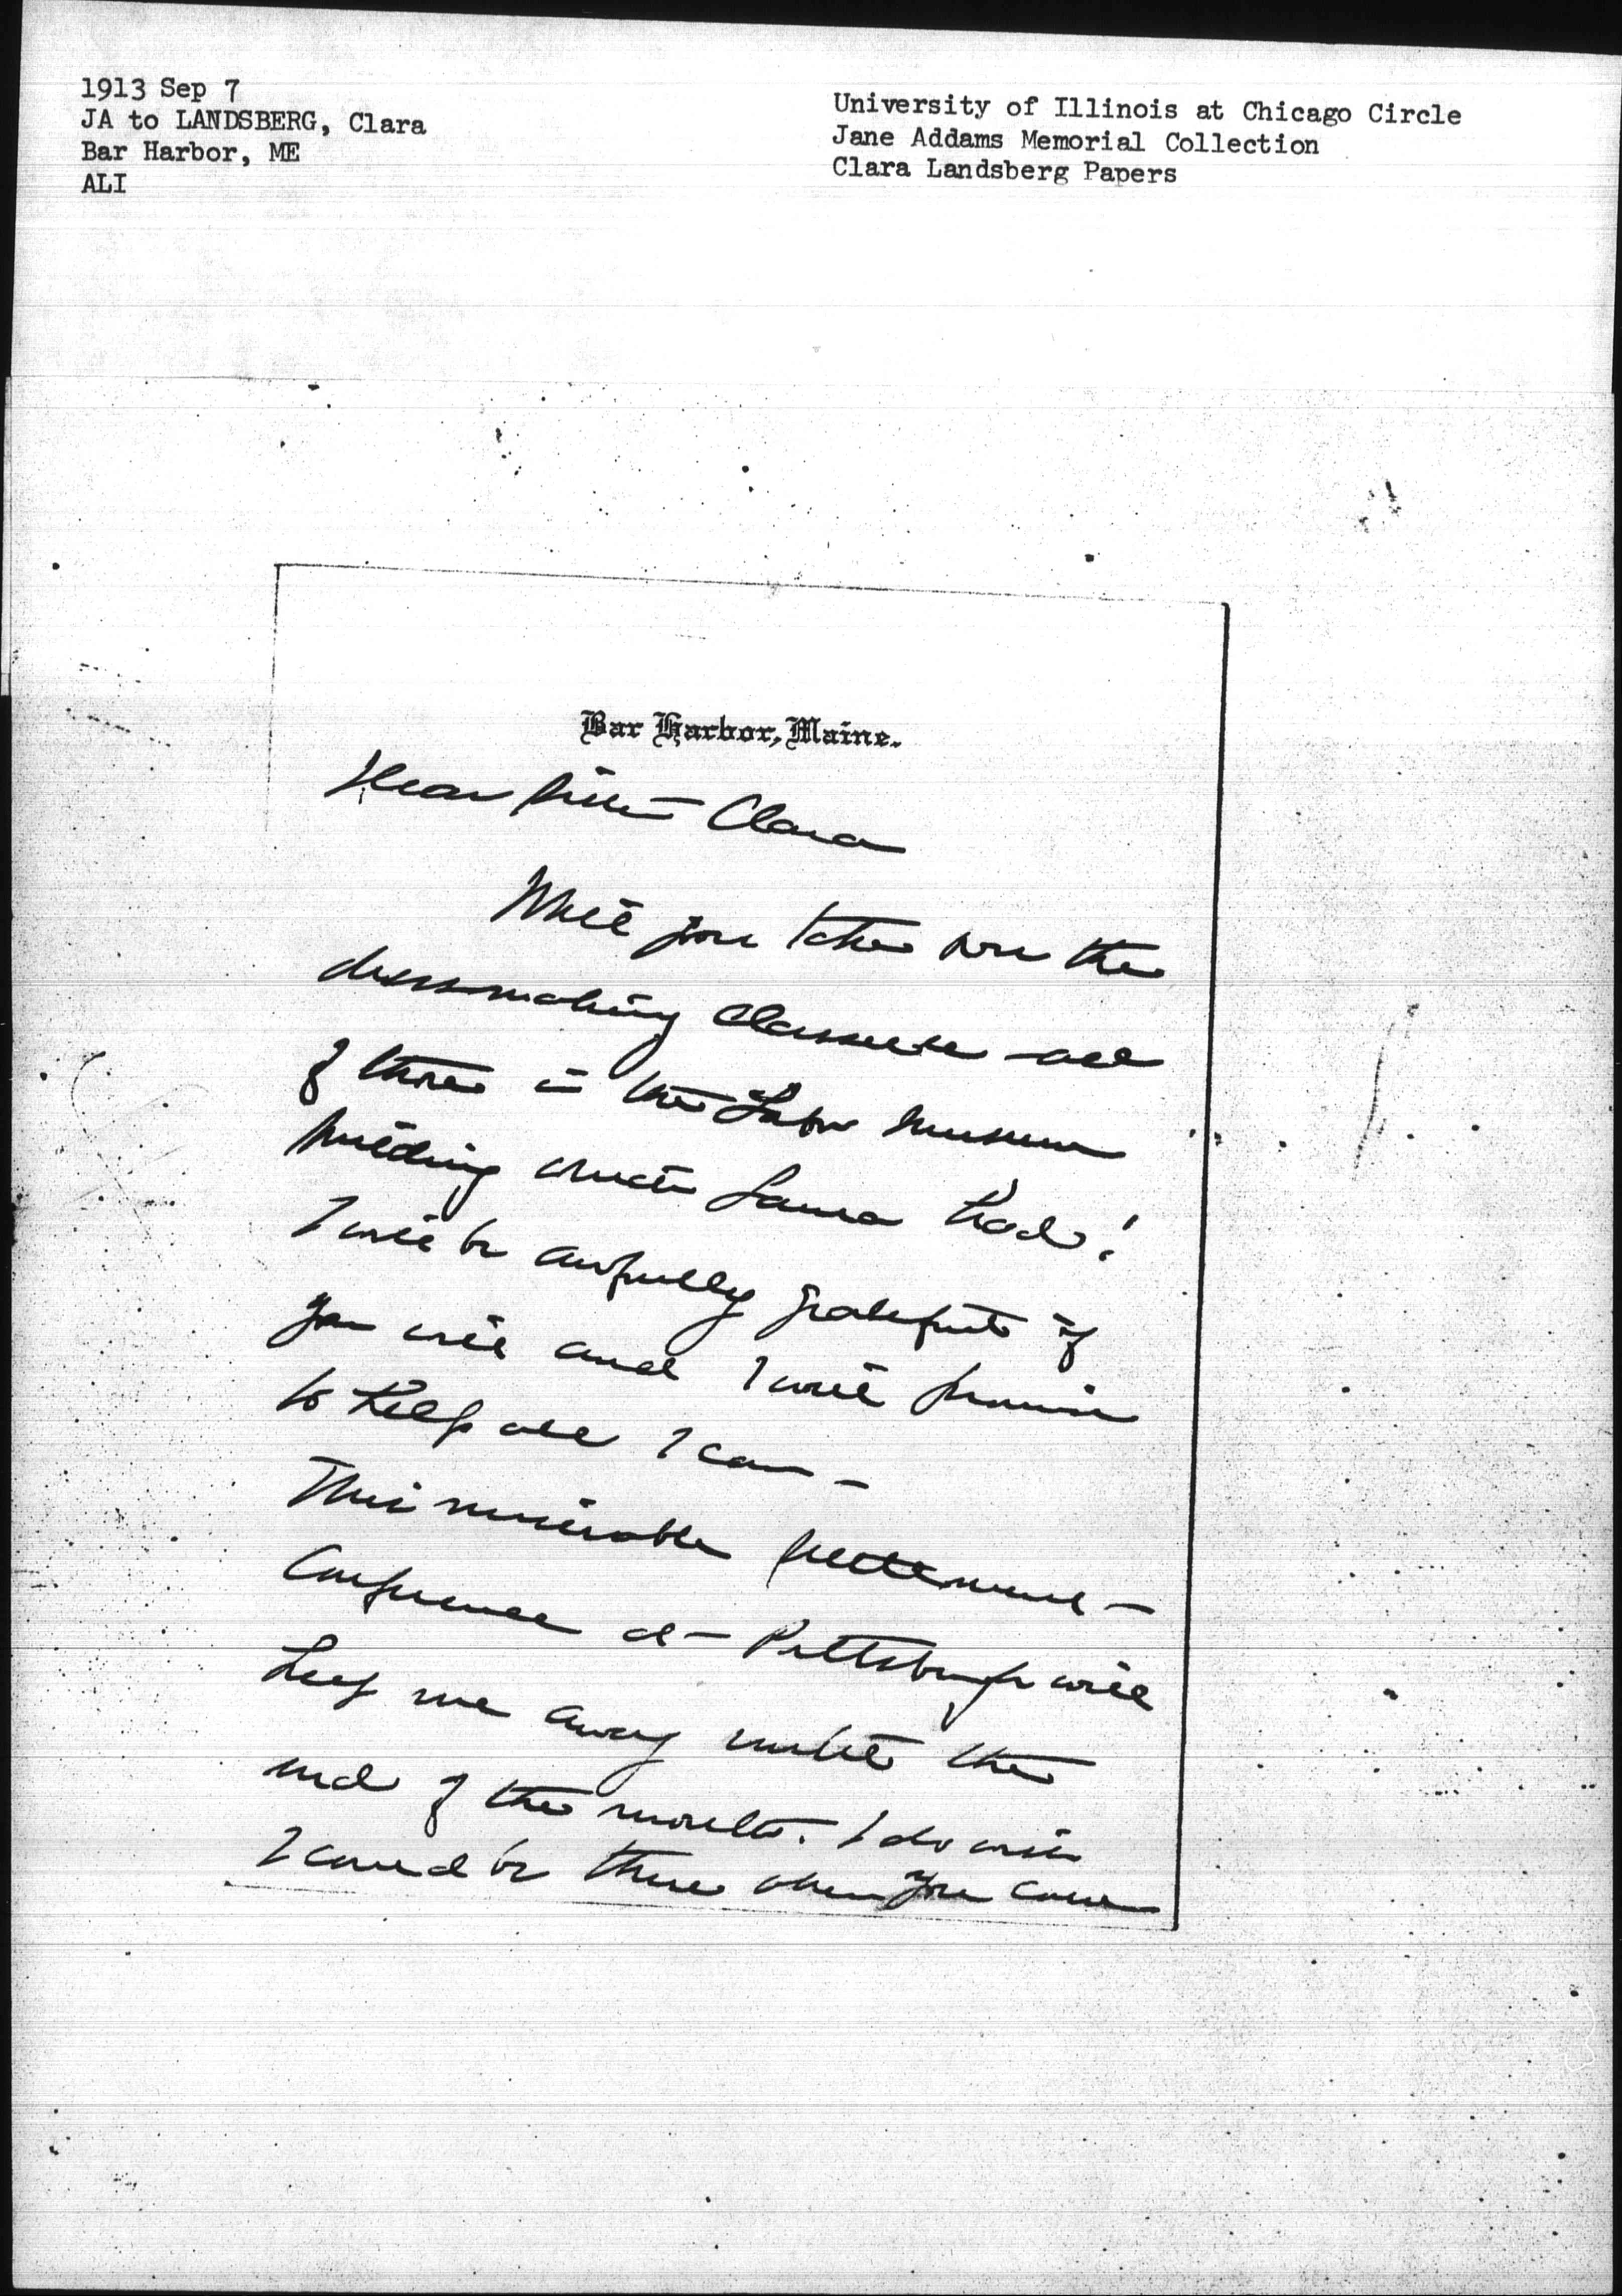 1913 Sep 7
JA to LANDSBERG, Clara
Bar Harbor, ME
ALI
University of Illinois at Chicago Circle
Jane Addams Memorial Collection
Clara Landsberg Papers
Bar Harbor, Maine.
Dear Sister Clara
Will you take over the
dressmaking classes all
of those in the Labor Museum
building which Laura had!
I will be awfully grateful if
you will and I will promise
to help all I can –
This miserable Settlement
Conference at Pittsburgh will
keep me away until the
end of the month. I do wish
I could be there when you come